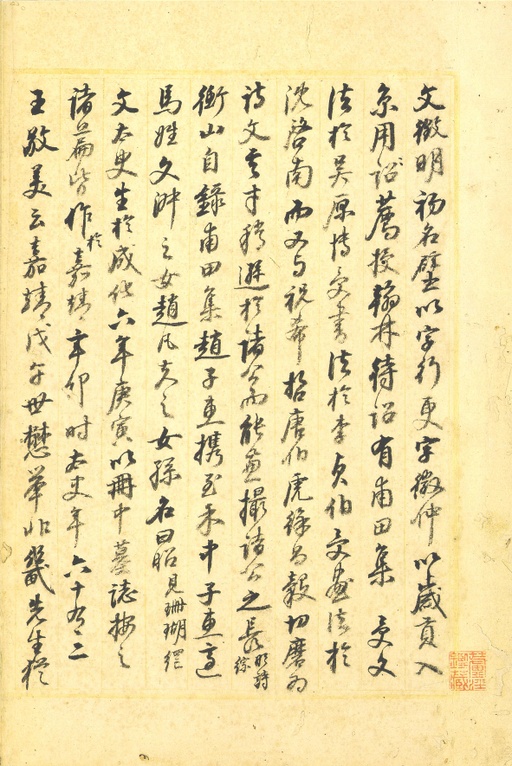 文徵明初名璧以字行更字徵仲以歲貢入
京用詔薦授翰林待詔有甫田集 受文
法於吳原博受書法於李貞伯受畫法於
沈啓南而又與祝希哲唐伯虎徐昌穀切磨為
詩文其才稍遜於諸公而能兼撮諸公之長 明詩綜
衡山自錄甫田集趙子惠攜至禾中子惠
馬姓文 之女趙凡夫之女孫名曰昭見珊瑚網
文太史生於成化六年庚寅以冊中墓誌按之
諸篇皆作於嘉靖辛卯時太史年六十有二
王敬美云嘉靖戊午世懋舉北畿先生猶